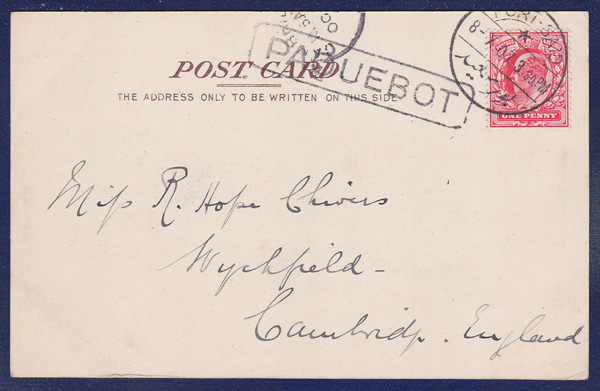 POST CARD
THE ADDRESS ONLY TO BE WRITTEN ON THIS SIDE
PAQUEBOT
PORT-SAID
3 30 PM
ONE PENNY
Miss R. Hope Chivers
Wychfield -
Cambridge. England